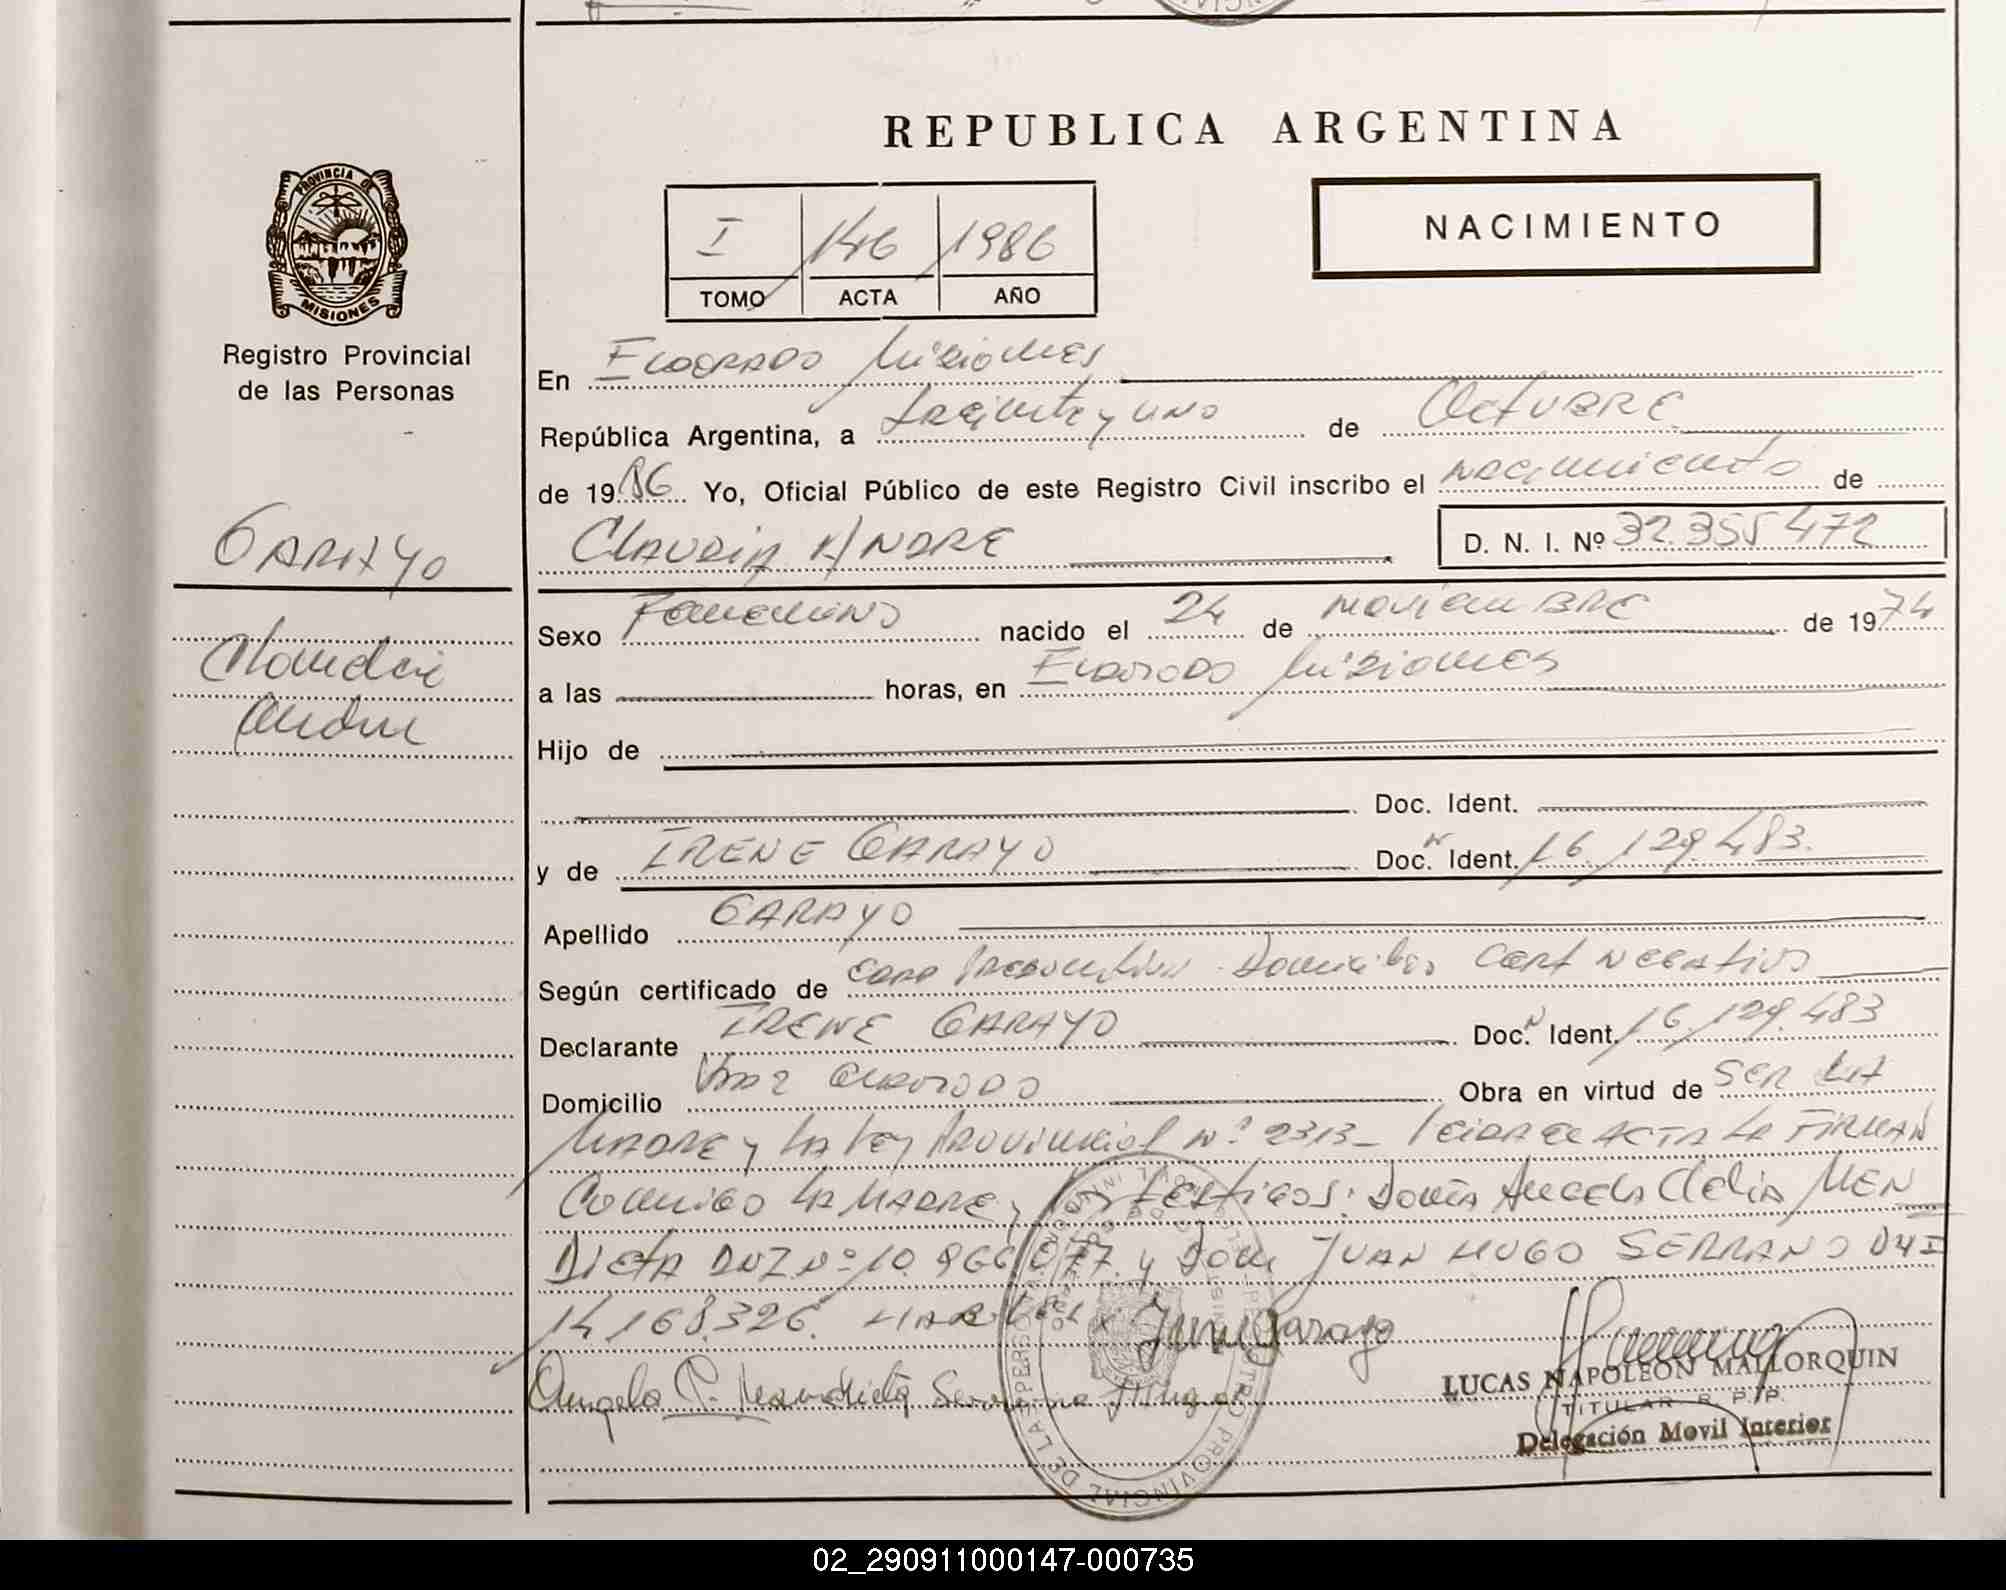 REPUBLICA ARGENTINA
PROVINCIA DE
MISIONES
Registro Provincial
de las Personas
GARAYO
Claudia
Andre
I 146 1986
TOMO ACTA AÑO
NACIMIENTO
En Eldorado Misiones
República Argentina, a treinta y uno de Octubre
de 1986 Yo, Oficial Público de este Registro Civil inscribo el nacimiento de
CLAUDIA ANDRE D. N. I. Nº 32.355.472
Sexo Femenino nacido el 24 de noviembre de 1974
a las horas, en Eldorado Misiones
Hijo de
Doc. Ident.
y de IRENE GARAYO Doc. Ident. 16.129.483.
Apellido GARAYO
Según certificado de Cert Negativo
Declarante IRENE GARAYO Doc. Ident. 16.129.483
Domicilio Eldorado Obra en virtud de SER LA
MADRE y LA Ley Provincial Nº 2313 - Leida el ACTA LA FIRMAN
Conmigo LA MADRE y los testigos: Doña Angela Clelia MEN
DIETA DNI Nº 10.966.077 y Don JUAN HUGO SERRANO DNI
14.168.326.
Irene Garayo
Angela C. Mendieta Serrano Hugo
LUCAS NAPOLEON MALLORQUIN
TITULAR R. P. P.
Delegación Movil Interior
02_290911000147-000735